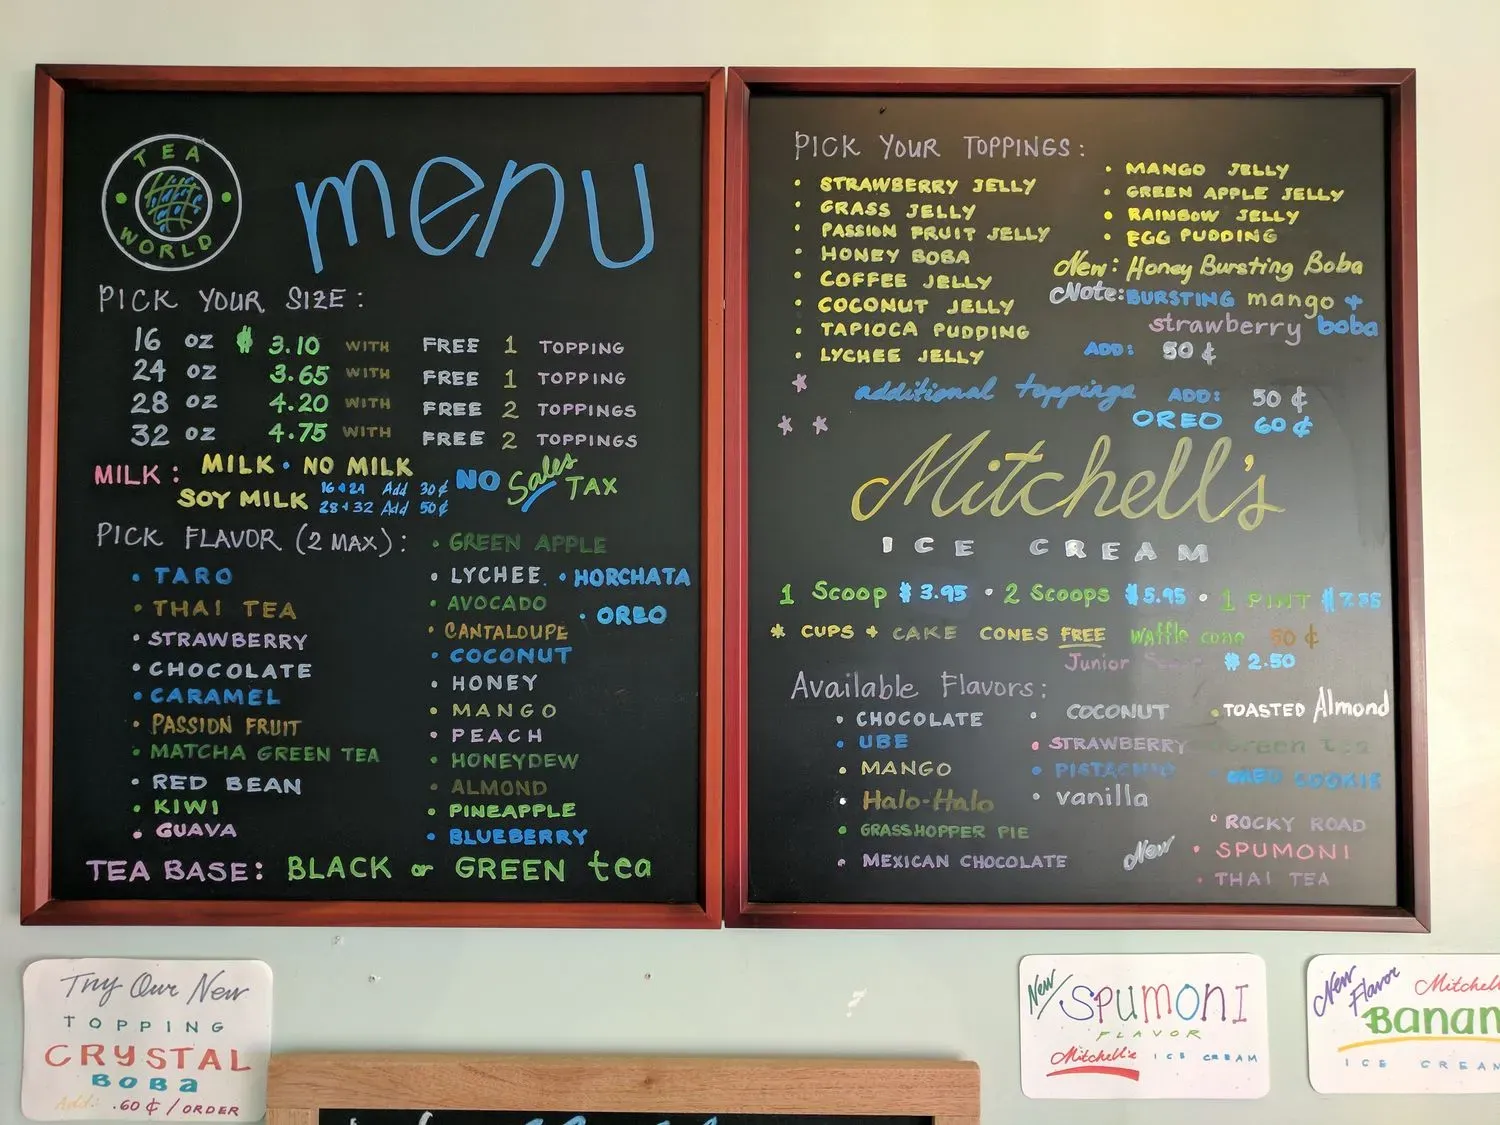 TEA
WORLD
menu
PICK YOUR SIZE:
16 oz $ 3.10 WITH FREE 1 TOPPING
24 oz 3.65 WITH FREE 1 TOPPING
28 oz 4.20 WITH FREE 2 TOPPINGS
32 oz 4.75 WITH FREE 2 TOPPINGS
MILK: MILK • NO MILK
SOY MILK 16 & 24 Add 30¢
28 & 32 Add 50¢
NO Sales TAX
PICK FLAVOR (2 MAX):
• TARO
• THAI TEA
• STRAWBERRY
• CHOCOLATE
• CARAMEL
• PASSION FRUIT
• MATCHA GREEN TEA
• RED BEAN
• KIWI
• GUAVA
• GREEN APPLE
• LYCHEE • HORCHATA
• AVOCADO • OREO
• CANTALOUPE
• COCONUT
• HONEY
• MANGO
• PEACH
• HONEYDEW
• ALMOND
• PINEAPPLE
• BLUEBERRY
TEA BASE: BLACK or GREEN tea
PICK YOUR TOPPINGS:
• STRAWBERRY JELLY
• GRASS JELLY
• PASSION FRUIT JELLY
• HONEY BOBA
• COFFEE JELLY
• COCONUT JELLY
• TAPIOCA PUDDING
• LYCHEE JELLY
• MANGO JELLY
• GREEN APPLE JELLY
• RAINBOW JELLY
• EGG PUDDING
New: Honey Bursting Boba
Note: BURSTING mango +
strawberry boba
ADD: 50¢
additional toppings ADD: 50¢
OREO 60¢
Mitchell's
ICE CREAM
1 Scoop $3.95 • 2 Scoops $5.95 • 1 PINT $7.35
* CUPS + CAKE CONES FREE Waffle cone 50¢
Junior $2.50
Available Flavors:
• CHOCOLATE
• UBE
• MANGO
• Halo-Halo
• GRASSHOPPER PIE
• MEXICAN CHOCOLATE
• COCONUT
• STRAWBERRY
• PISTACHIO
• vanilla
• TOASTED Almond
Green tea
• OREO COOKIE
• ROCKY ROAD
New • SPUMONI
• THAI TEA
Try Our New
TOPPING
CRYSTAL
BOBA
Add: .60¢/ORDER
New/ SPUMONI
FLAVOR
Mitchell's ICE CREAM
New Flavor Mitchell
Banan
ICE CREA